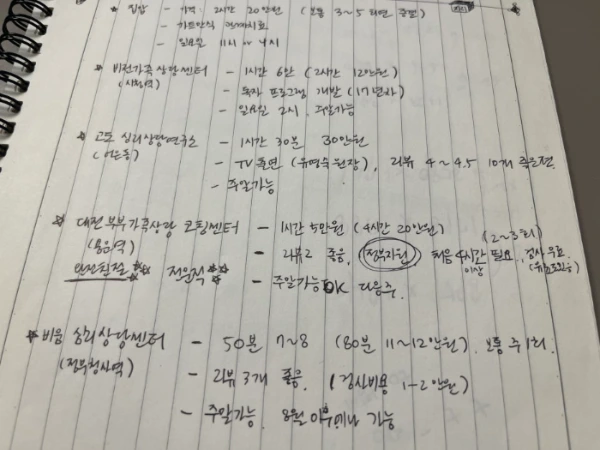 * 집합 - 가격: 2시간 20만원 (보통 3~5회면 충분)
- 가트만식
- 일요일 11시 or 4시
* 비전가족상담센터 - 1시간 6만 (2시간 12만원)
(시청역) - 독자 프로그램 개발 (17년차)
- 일요일 2시. 주말가능
* 고도 심리상담연구소 - 1시간 30분 30만원
(어은동) - TV출연 (유영숙원장), 리뷰 4~4.5 10개
- 주말가능
* 대전부부가족상담 코칭센터 - 1시간 5만원 (4시간 20만원)
(용문역) - 리뷰2 좋음, 정부지원, 처음 4시간 필요, 검사 무료 (2~3회)
이상
** 전원적 ** - 주말가능 OK 다음주.
* 비움 심리상담센터 - 50분 7~8 (80분 11~12만원). 보통 주1회.
(정부청사역) - 리뷰 3개 좋음. (검사비용 1-2만원)
- 주말가능. 8월 이후에나 가능